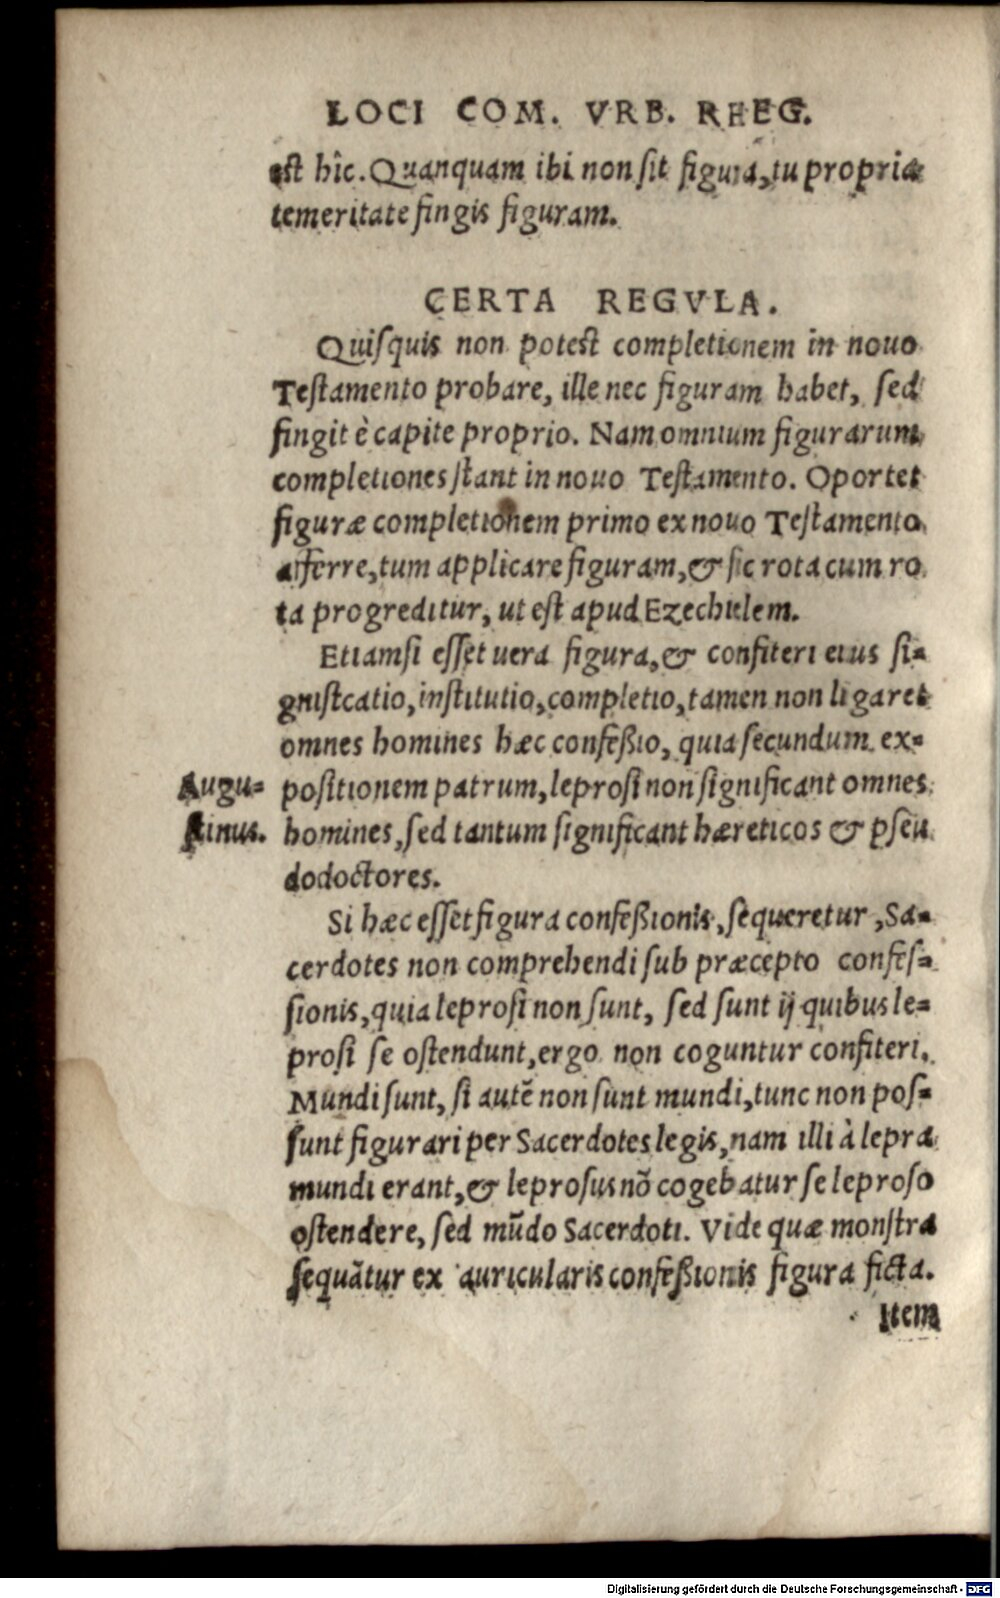 LOCI COM. VRB. RHEG.
est hîc. Quanquam ibi non sit figura, tu propria
temeritate fingis figuram.
CERTA REGVLA.
Quisquis non potest completionem in nouo
Testamento probare, ille nec figuram habet, sed
fingit è capite proprio. Nam omnium figurarum
completiones stant in nouo Testamento. Oportet
figuræ completionem primo ex nouo Testamento
afferre, tum applicare figuram, & sic rota cum ro
ta progreditur, ut est apud Ezechielem.
Etiamsi esset uera figura, & confiteri eius si-
gnificatio, institutio, completio, tamen non ligaret
omnes homines hæc confeßio, quia secundum ex-
Augu- positionem patrum, leprosi non significant omnes
stinus. homines, sed tantum significant hæreticos & pseu
dodoctores.
Si hæc esset figura confeßionis, sequeretur, Sa-
cerdotes non comprehendi sub præcepto confes-
sionis, quia leprosi non sunt, sed sunt ij quibus le-
prosi se ostendunt, ergo non coguntur confiteri.
Mundi sunt, si autẽ non sunt mundi, tunc non pos-
sunt figurari per Sacerdotes legis, nam illi à lepra
mundi erant, & leprosus nõ cogebatur se leproso
ostendere, sed mũdo Sacerdoti. Vide quæ monstra
sequãtur ex auricularis confeßionis figura ficta.
Item
Digitalisierung gefördert durch die Deutsche Forschungsgemeinschaft - DFG